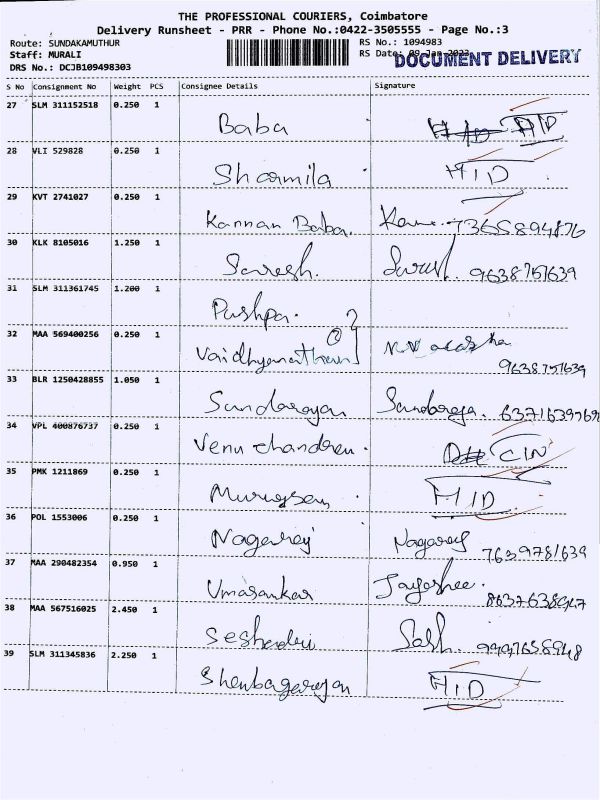 THE PROFESSIONAL COURIERS, Coimbatore
Delivery Runsheet - PRR - Phone No.:0422-3505555 - Page No.:3
Route: SUNDAKAMUTHUR RS No.: 1094983
Staff: MURALI RS Date: 09-Jan-2023
DOCUMENT DELIVERY
DRS No.: DCJB109498303
S No Consignment No Weight PCS Consignee Details Signature
27 SLM 311152518 0.250 1
Baba HID
28 VLI 529828 0.250 1
Sharmila HID
29 KVT 2741027 0.250 1
Kannan Baba. 7365894876
30 KLK 8105016 1.250 1
Suresh. Suresh. 9638751639
31 SLM 311361745 1.200 1
Pushpa.
32 MAA 569400256 0.250 1
Vaidhyanathan
9638751639
33 BLR 1250428855 1.050 1
Sundarayan
34 VPL 400876737 0.250 1
Venu chandren. CIN
35 PMK 1211869 0.250 1
Murugesan HID
36 POL 1553006 0.250 1
Nagaraj Nagaraj 7639781639
37 MAA 290482354 0.950 1
Umasankar Jayashee.
38 MAA 567516025 2.450 1
Seshadri
39 SLM 311345836 2.250 1
Shenbagarajan HID